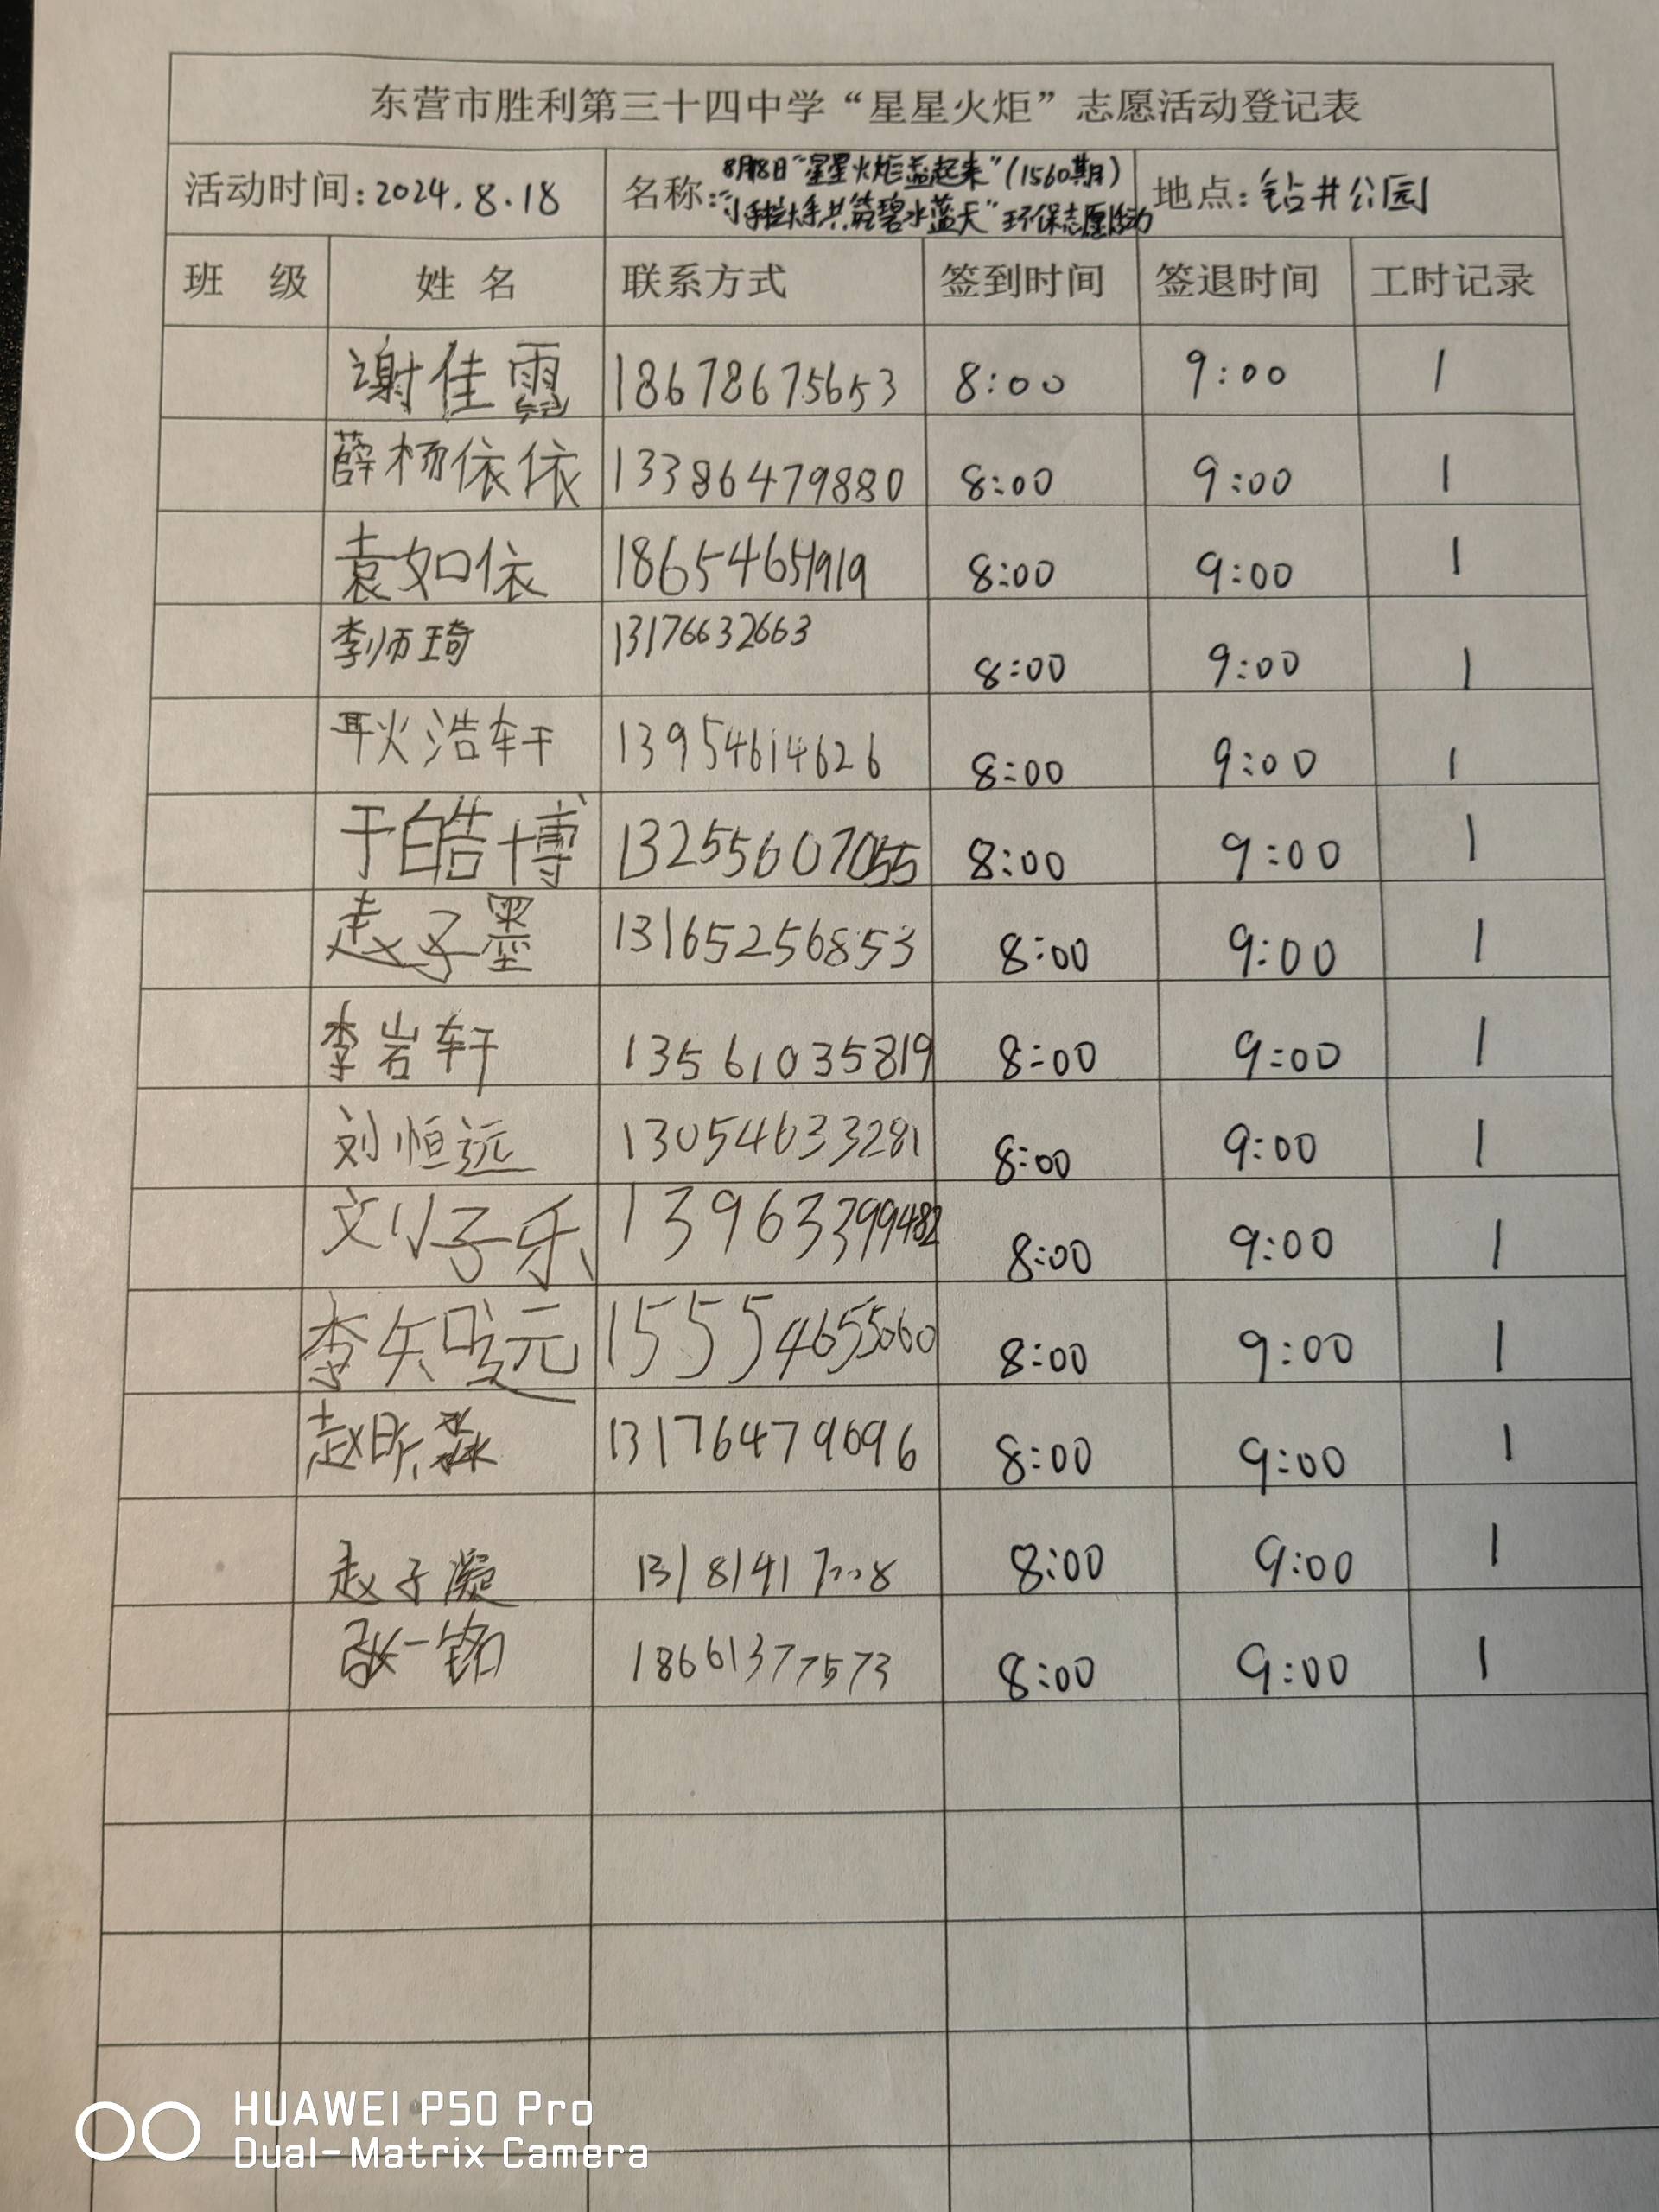 东营市胜利第三十四中学“星星火炬”志愿活动登记表
活动时间:2024.8.18 名称: 8月18日“星星火炬益起来”(1560期) 地点:钻井公园
“小手拉大手共筑碧水蓝天”环保志愿活动
班 级 姓 名 联系方式 签到时间 签退时间 工时记录
谢佳霓 18678675653 8:00 9:00 1
薛杨依依 13386479880 8:00 9:00 1
袁如依 18654651919 8:00 9:00 1
李师琦 13176632663 8:00 9:00 1
耿浩轩 13954614626 8:00 9:00 1
于皓博 13255607055 8:00 9:00 1
赵子墨 13165256853 8:00 9:00 1
李岩轩 13561035819 8:00 9:00 1
刘恒远 13054633281 8:00 9:00 1
刘子乐 13963399482 8:00 9:00 1
李知元 15554655060 8:00 9:00 1
赵昕淼 13176479696 8:00 9:00 1
赵子凝 13181417008 8:00 9:00 1
张一铭 18661377573 8:00 9:00 1
HUAWEI P50 Pro
Dual-Matrix Camera